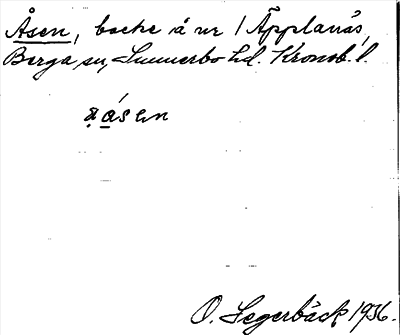 Åsen, backe å nr 1 Äpplanäs,
Berga sn, Sunnerbo hd. Kronob. l.
a̤ åsen
O. Segerbäck 1936.